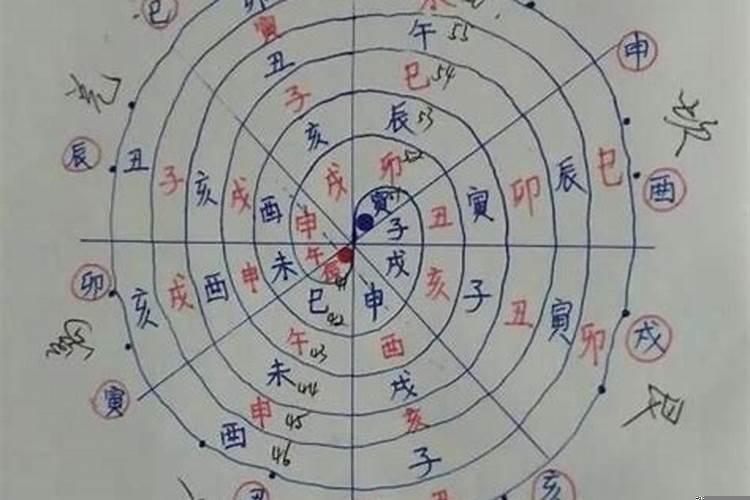 巳 卯
寅 午 55
丑 巳 54 申
子
亥 辰 53
辰 丑 子 亥 戌 酉 戌 卯 52 丑 寅 卯 辰 巳 酉
申 寅 子
午 戌
卯 亥 戌 酉 申 未 巳 42 申 亥 子 丑 寅 卯 戌
午 43 酉
寅 未 44 戌
申 45 亥
酉 46 子
丑 丑 亥